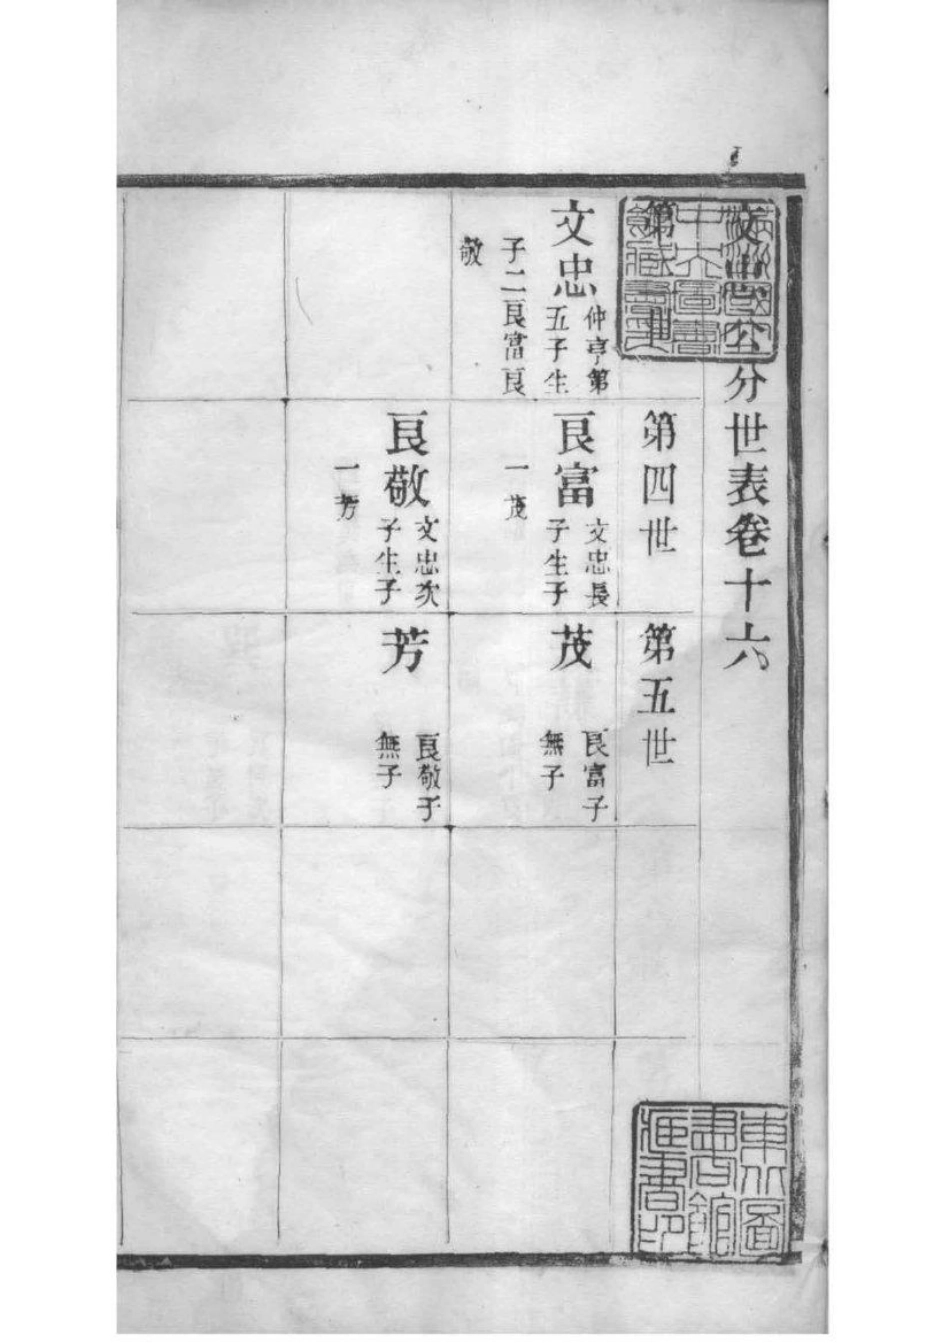 文忠公分世表卷十六
第三世
第四世
第五世
文忠
仲亨第
五子生
子二良富良
敬
良富
文忠長
子生子
一茂
茂
良富子
無子
良敬
文忠次
子生子
一芳
芳
良敬子
無子
東北圖
書館
藏書印